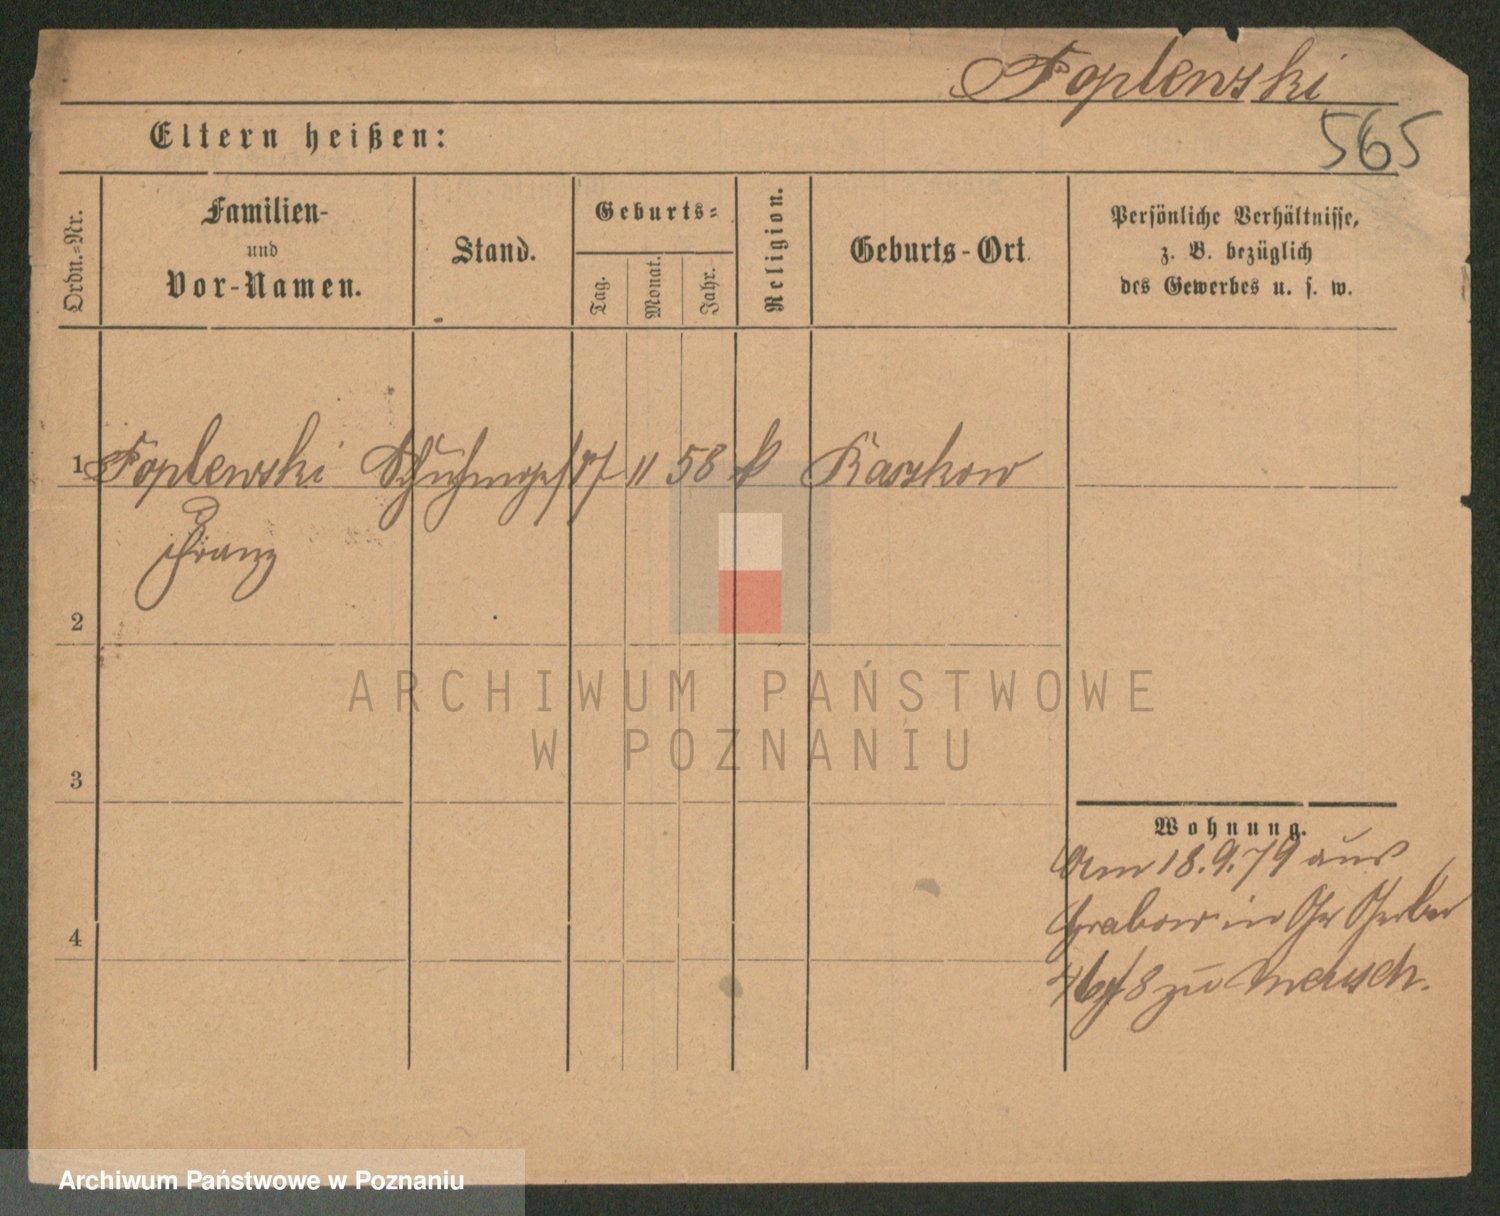 Toplewski
565
Eltern heißen:
Ordn.-Nr.
Familien-
und
Vor-Namen.
Stand.
Geburts-
Tag.
Monat.
Jahr.
Religion.
Geburts-Ort.
Persönliche Verhältnisse,
z. B. bezüglich
des Gewerbes u. s. w.
1 Toplewski 11 58 k
Franz
2
3
4
Wohnung.
Am 18.9.79 aus
Grabow in Gr Gerber
8 zu
ARCHIWUM PAŃSTWOWE
W POZNANIU
Archiwum Państwowe w Poznaniu